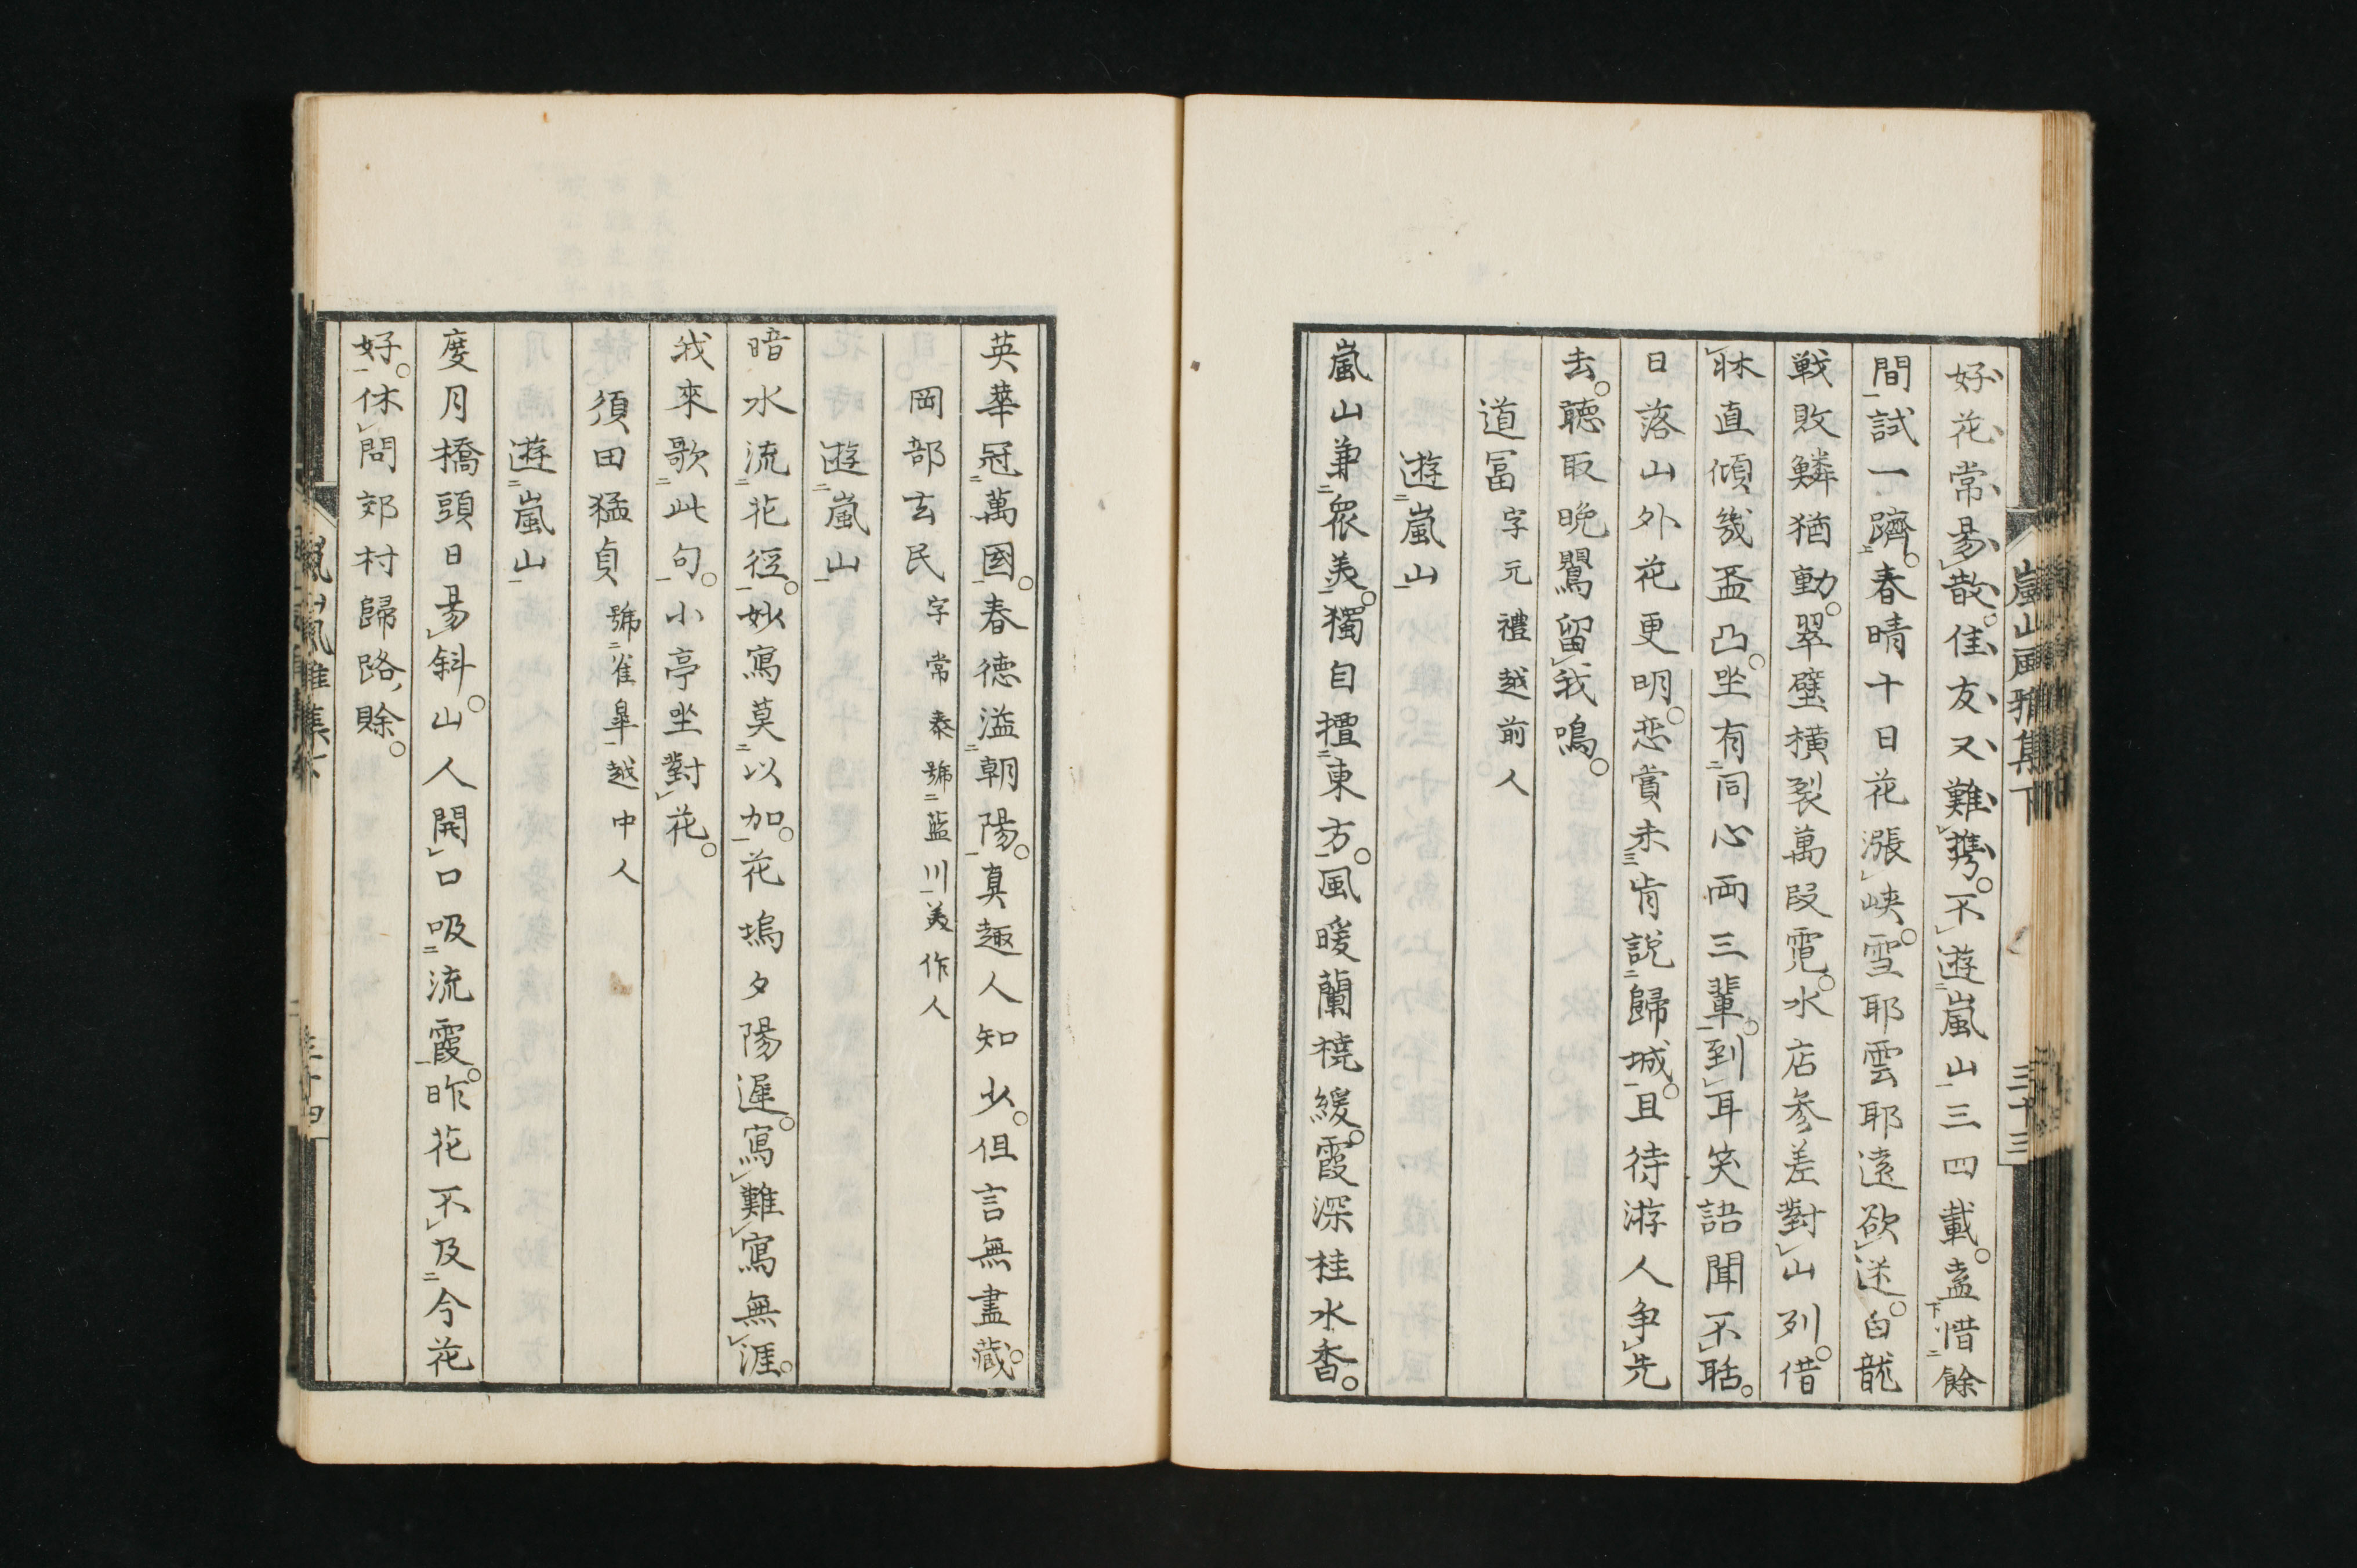 嵐山風雅集下
三十三
好花常易散佳友又難携不遊嵐山三四載盍惜餘
間試一躋春晴十日花漲峽雪耶雲耶遠欲迷白龍
戦敗鱗猶動翠壁横裂萬段霓水店参差對山列借
牀直傾幾盃凸坐有同心両三輩到耳笑語聞不聒
日落山外花更明恋賞未肯説歸城且待游人争先
去聴取晩鸎留我鳴
道冨字元禮越前人
遊嵐山
嵐山兼衆美獨自擅東方風暖蘭橈緩霞深桂水香
英華冠萬国春徳溢朝陽真趣人知少但言無盡藏
岡部玄民字常泰號藍川美作人
遊嵐山
暗水流花径妙寫莫以加花塢夕陽遲寫難寫無涯
我來歌此句小亭坐對花
須田猛貞號雀皐越中人
遊嵐山
度月橋頭日易斜山人開口吸流霞昨花不及今花
好休問郊村歸路賖
三十四